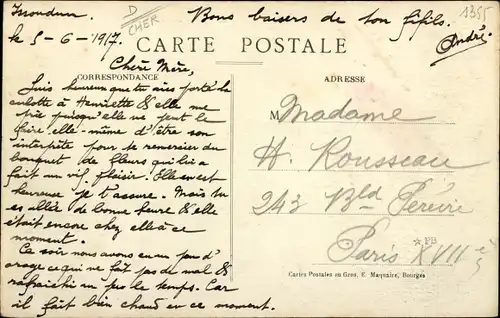 Issoudun.
le 5-6-1917.
D
CHER
Bons baisers de ton fifils.
André
1355
CARTE POSTALE
Chère Mère,
CORRESPONDANCE
ADRESSE
Suis heureux que tu aies porté la
culotte à Henriette & elle me
prie puisqu'elle ne peut le
faire elle-même d'être son
interprète pour te remercier du
bouquet de fleurs qui lui a
fait un vif plaisir. Elle en est
heureuse je t'assure. Mais tu
es allée de bonne heure & elle
était encore chez elle à ce
moment.
Ce soir nous avons eu un peu d'
orage ce qui ne fait pas de mal &
rafraichi un peu le temps. Car
il fait bien chaud en ce moment.
Madame
H. Rousseau
243 Bld Péreire
Paris XVII
FB
Cartes Postales en Gros, E. Maquaire, Bourges